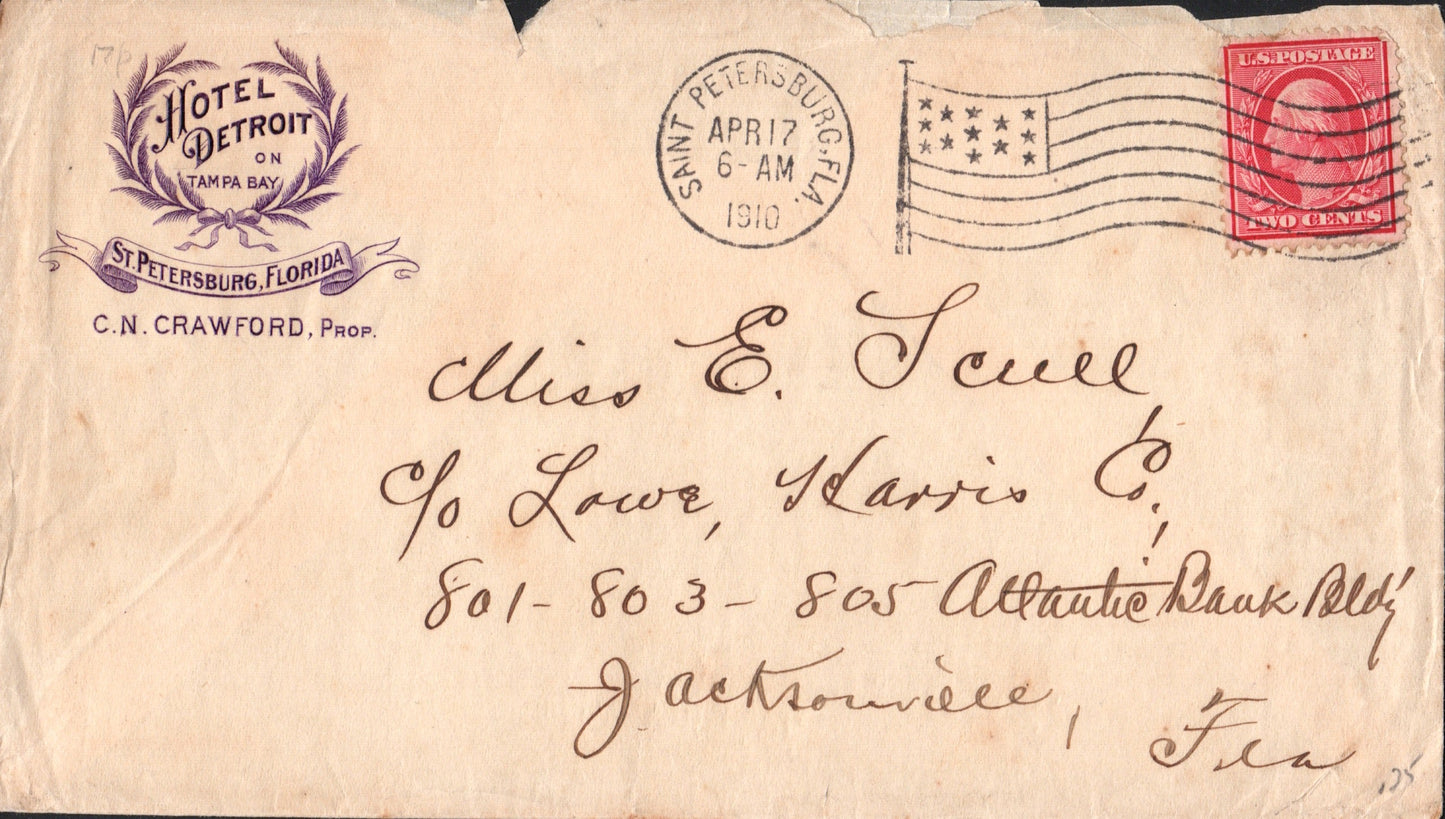 17p
HOTEL
DETROIT
ON
TAMPA BAY
ST. PETERSBURG, FLORIDA
C.N. CRAWFORD, PROP.
SAINT PETERSBURG, FLA.
APR 17
6-AM
1910
U.S. POSTAGE
TWO CENTS
Miss E. Scull,
c/o Lowe, Harris Co.,
801-803-805 Atlantic Bank Bldg
Jacksonville, Fla